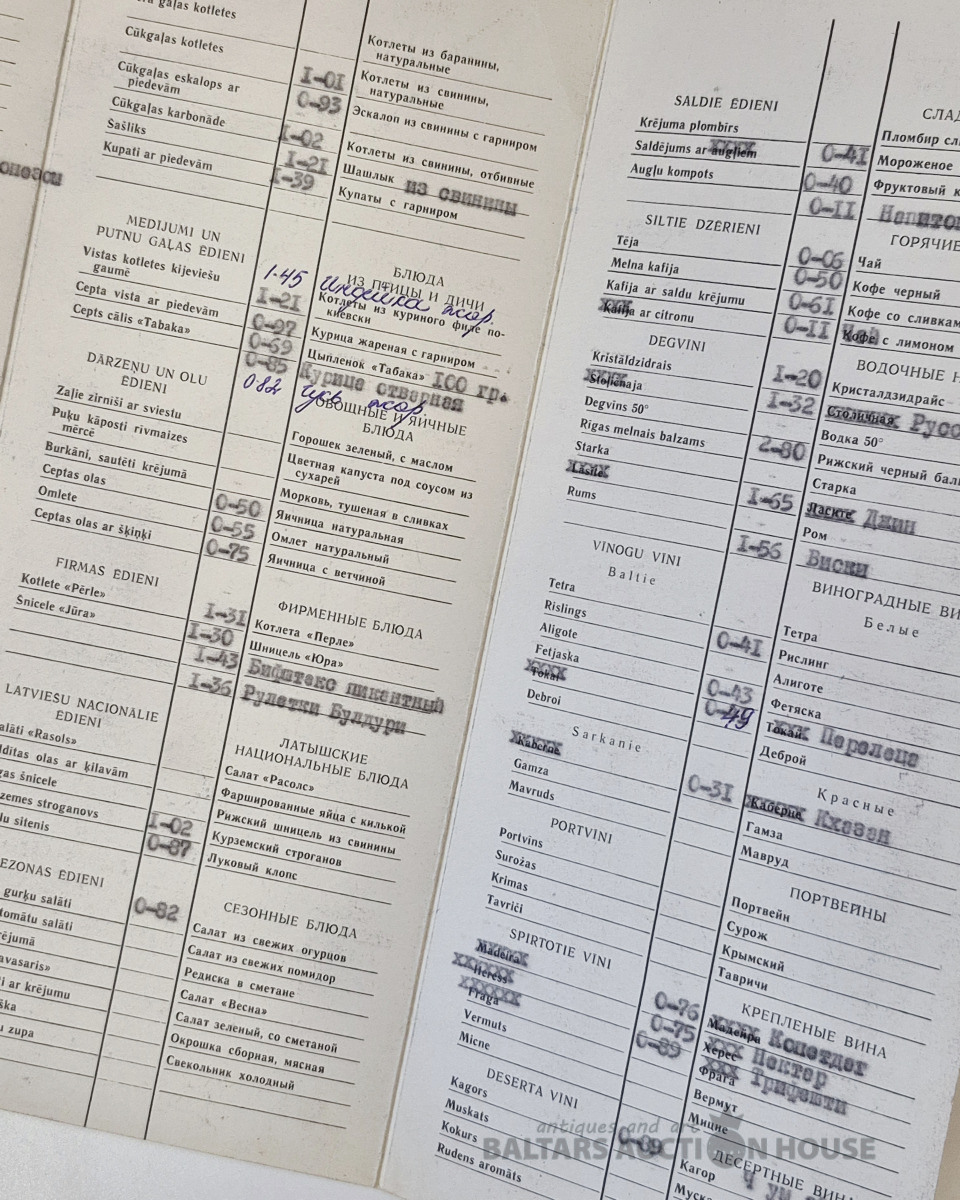 gaļas kotletes
Cūkgaļas kotletes
Cūkgaļas eskalops ar
piedevām
Cūkgaļas karbonāde
Šašliks
Kupati ar piedevām
I-0I
0-93
I-02
I-2I
I-39
Котлеты из баранины,
натуральные
Котлеты из свинины,
натуральные
Эскалоп из свинины с гарниром
Котлеты из свинины, отбивные
Шашлык из свинины
Купаты с гарниром
MEDĪJUMI UN
PUTNU GAĻAS ĒDIENI
Vistas kotletes kijeviešu
gaumē
Cepta vista ar piedevām
Cepts cālis «Tabaka»
1-45
I-2I
0-97
0-69
0-85
082
БЛЮДА
ИЗ ПТИЦЫ И ДИЧИ
Индейка жар.
Котлеты из куриного филе по-
киевски
Курица жареная с гарниром
Цыпленок «Табака» I00 гр.
Курица отварная
Гусь жар.
DĀRZEŅU UN OLU
ĒDIENI
Zaļie zirnīši ar sviestu
Puķu kāposti rīvmaizes
mērcē
Burkāni, sautēti krējumā
Ceptas olas
Omlete
Ceptas olas ar šķiņķi
0-50
0-55
0-75
ОВОЩНЫЕ И ЯИЧНЫЕ
БЛЮДА
Горошек зеленый, с маслом
Цветная капуста под соусом из
сухарей
Морковь, тушеная в сливках
Яичница натуральная
Омлет натуральный
Яичница с ветчиной
FIRMAS ĒDIENI
Kotlete «Pērle»
Šnicele «Jūra»
I-3I
I-30
I-43
I-36
ФИРМЕННЫЕ БЛЮДА
Котлета «Перле»
Шницель «Юра»
Бифштекс пикентный
Рулетки Булдури
LATVIEŠU NACIONĀLIE
ĒDIENI
salāti «Rasols»
olas ar ķilavām
šnicele
stroganovs
sitenis
I-02
0-87
ЛАТЫШСКИЕ
НАЦИОНАЛЬНЫЕ БЛЮДА
Салат «Расолс»
Фаршированные яйца с килькой
Рижский шницель из свинины
Курземский строганов
Луковый клопс
SEZONAS ĒDIENI
gurķu salāti
tomātu salāti
krējumā
«Pavasaris»
ar krējumu
zupa
0-82
СЕЗОННЫЕ БЛЮДА
Салат из свежих огурцов
Салат из свежих помидор
Редиска в сметане
Салат «Весна»
Салат зеленый, со сметаной
Окрошка сборная, мясная
Свекольник холодный
SALDIE ĒDIENI
Krējuma plombīrs
Saldējums ar augļiem
Augļu kompots
0-4I
0-40
0-II
СЛАД
Пломбир сл
Мороженое
Фруктовый к
Напиток
SILTIE DZĒRIENI
Tēja
Melna kafija
Kafija ar saldu krējumu
Kafija ar citronu
0-06
0-50
0-6I
0-II
ГОРЯЧИЕ
Чай
Кофе черный
Кофе со сливкам
Кофе с лимоном
DEGVĪNI
Kristāldzidrais
Stoļičnaja
Degvīns 50°
Rīgas melnais balzams
Starka
Lasite
Rums
I-20
I-32
2-80
I-65
I-56
ВОДОЧНЫЕ Н
Кристалдзидрайс
Столичная Русс
Водка 50°
Рижский черный баль
Старка
Ласите Джин
Ром
Виски
VĪNOGU VĪNI
Baltie
Tetra
Rislings
Aligote
Fetjaska
Tokai
Debroi
0-4I
0-43
0-49
ВИНОГРАДНЫЕ ВИ
Белые
Тетра
Рислинг
Алиготе
Фетяска
Токай Перолеца
Деброй
Sarkanie
Kabernē
Gamza
Mavruds
0-3I
Красные
Каберне Кхазан
Гамза
Мавруд
PORTVĪNI
Portvīns
Surožas
Krimas
Tavriči
ПОРТВЕЙНЫ
Портвейн
Сурож
Крымский
Тавричи
SPIRTOTIE VĪNI
Madeira
Heress
Fraga
Vermuts
Micne
0-76
0-75
0-89
КРЕПЛЕНЫЕ ВИНА
Мадейра Копетдег
Херес Нектар
Фрага Трифешти
Вермут
Мицне
DESERTA VĪNI
Kagors
Muskats
Kokurs
Rudens aromāts
0-89
ДЕСЕРТНЫЕ ВИНА
Кагор
Муска
antiques and art
BALTARS AUCTION HOUSE